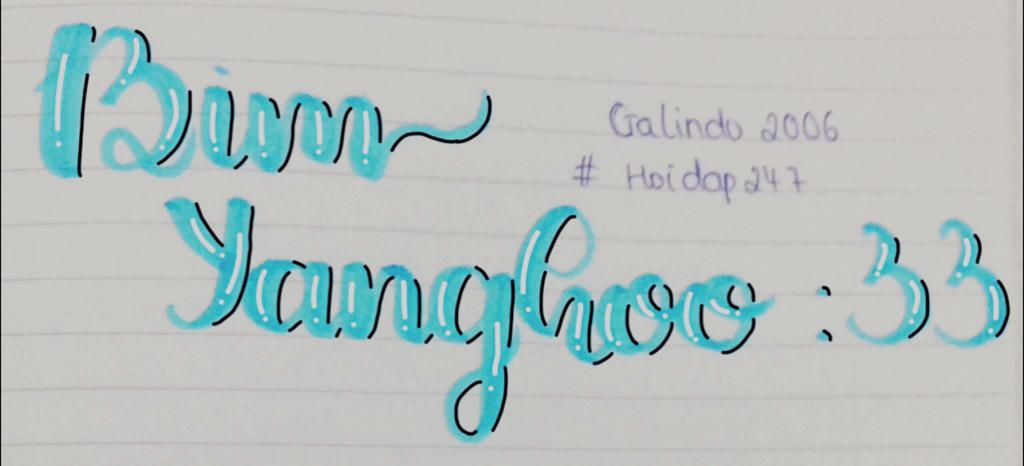 Bim
Galindo 2006
# Hoidap247
Yanghoo :33